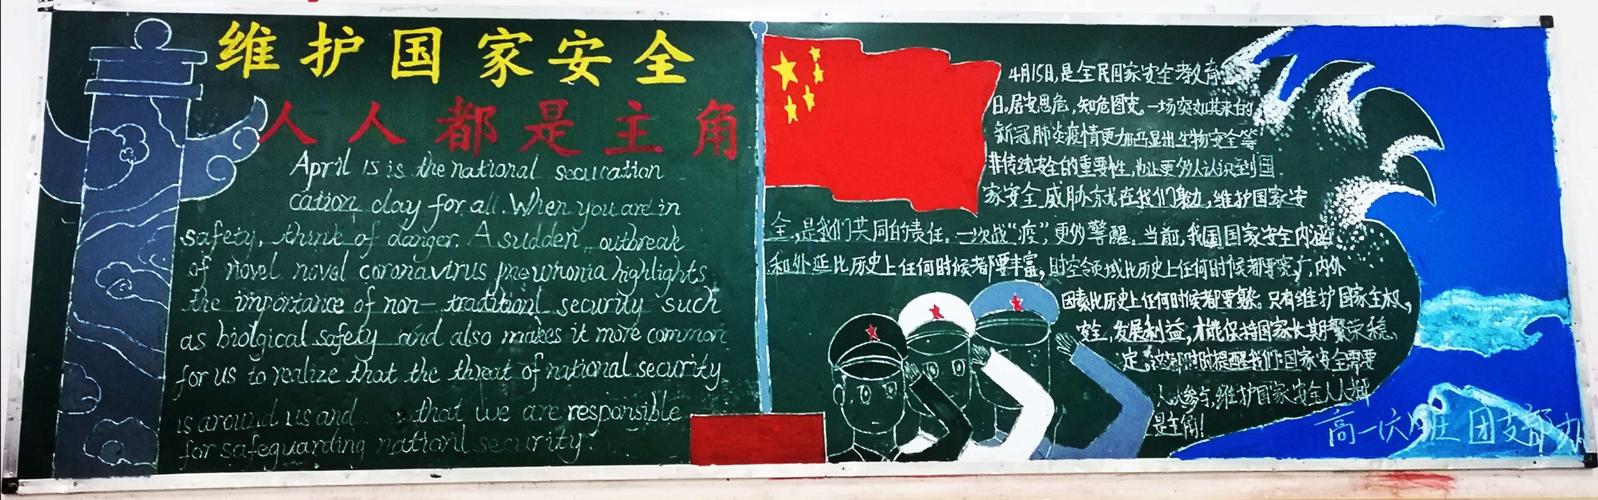 维护国家安全
人人都是主角
April 15 is the national secucation
cation clay for all. When you are in
safety, think of danger. A sudden outbreak
of novel novel coronavirus pneumonia highlights
the importance of non-traditionl security such
as biolgical safety and also makes it more common
for us to realize that the threat of national security
is around us and that we are responsible
for safeguarding nationl security.
4月15日,是全民国家安全教育
日,居安思危,知危图安。一场突如其来的
新冠肺炎疫情更加凸显出生物安全等
非传统安全的重要性,也让更多人认识到国
家安全威胁就在我们身边,维护国家安
全,是我们共同的责任。一次战“疫”,更多警醒。当前,我国国家安全内涵
和外延比历史上任何时候都要丰富,时空领域比历史上任何时候都要宽广,内外
因素比历史上任何时候都要复杂。只有维护国家主权、
安全、发展利益,才能保持国家长期繁荣稳
定,时时提醒我们:国家安全需要
人人参与,维护国家安全人人都
是主角!
高一班 团支部办